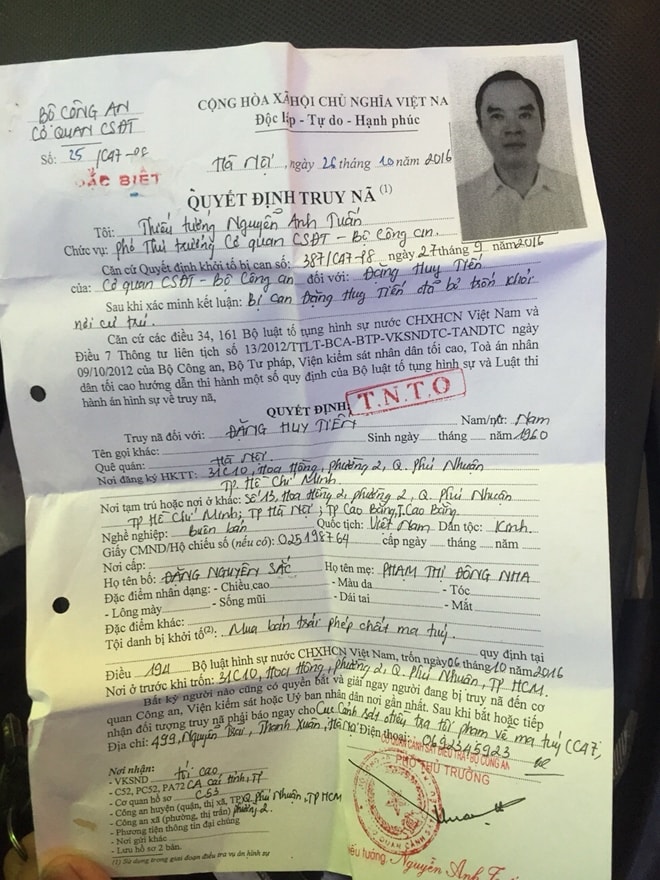 BỘ CÔNG AN
CƠ QUAN CSĐT
Số: 25 /C47-P8
ĐẶC BIỆT
CỘNG HÒA XÃ HỘI CHỦ NGHĨA VIỆT NA
Độc lập - Tự do - Hạnh phúc
Hà Nội, ngày 26 tháng 10 năm 2016
QUYẾT ĐỊNH TRUY NÃ (1)
Tôi: Thiếu tướng Nguyễn Anh Tuấn
Chức vụ: Phó Thủ trưởng Cơ quan CSĐT - Bộ Công an.
Căn cứ Quyết định khởi tố bị can số: 387/C47-P8 ngày 27 tháng 9 năm 2016
của: Cơ quan CSĐT - Bộ Công an đối với: Đặng Huy Tiến
Sau khi xác minh kết luận: Bị can Đặng Huy Tiến đã bỏ trốn khỏi
nơi cư trú.
Căn cứ các điều 34, 161 Bộ luật tố tụng hình sự nước CHXHCN Việt Nam và
Điều 7 Thông tư liên tịch số 13/2012/TTLT-BCA-BTP-VKSNDTC-TANDTC ngày
09/10/2012 của Bộ Công an, Bộ Tư pháp, Viện kiểm sát nhân dân tối cao, Toà án nhân
dân tối cao hướng dẫn thi hành một số quy định của Bộ luật tố tụng hình sự và Luật thi
hành án hình sự về truy nã,
QUYẾT ĐỊNH:
T.N.T.O
Truy nã đối với: ĐẶNG HUY TIẾN Nam/nữ: Nam
Tên gọi khác: Sinh ngày tháng năm 1960
Quê quán: Hà Nội
Nơi đăng ký HKTT: 31C10, Hoa Hồng, phường 2, Q. Phú Nhuận
TP Hồ Chí Minh
Nơi tạm trú hoặc nơi ở khác: Số 13, Hoa Hồng 2, phường 2, Q. Phú Nhuận
TP Hồ Chí Minh; TP Hà Nội; TP Cao Bằng, T. Cao Bằng
Nghề nghiệp: buôn bán Quốc tịch: Việt Nam Dân tộc: Kinh
Giấy CMND/Hộ chiếu số (nếu có): 025198764 cấp ngày tháng năm
Nơi cấp:
Họ tên bố: ĐẶNG NGUYÊN SẮC Họ tên mẹ: PHẠM THỊ ĐÔNG NHA
Đặc điểm nhân dạng: - Chiều cao - Màu da - Tóc
- Lông mày - Sống mũi - Dái tai - Mắt
Đặc điểm khác:
Tội danh bị khởi tố(2): Mua bán trái phép chất ma tuý.
quy định tại
Điều 194 Bộ luật hình sự nước CHXHCN Việt Nam, trốn ngày 06 tháng 10 năm 2016
Nơi ở trước khi trốn: 31C10, Hoa Hồng, phường 2, Q. Phú Nhuận, TP HCM.
Bất kỳ người nào cũng có quyền bắt và giải ngay người đang bị truy nã đến cơ
quan Công an, Viện kiểm sát hoặc Uỷ ban nhân dân nơi gần nhất. Sau khi bắt hoặc tiếp
nhận đối tượng truy nã phải báo ngay cho Cục Cảnh sát điều tra tội phạm về ma tuý (C47,
Địa chỉ: 499, Nguyễn Trãi, Thanh Xuân, Hà Nội Điện thoại: 0692345923
Nơi nhận:
- VKSND tối cao
- C52, PC52, PA72 CA các tỉnh, TP
- Cơ quan hồ sơ C53
- Công an huyện (quận, thị xã, TP) Q. Phú Nhuận, TP HCM
- Công an xã (phường, thị trấn) phường 2.
- Phương tiện thông tin đại chúng
- Nơi gửi khác
- Lưu hồ sơ 2 bản.
(1) Sử dụng trong giai đoạn điều tra vụ án hình sự
QUAN CẢNH SÁT ĐIỀU TRA - BỘ CÔNG AN
PHÓ THỦ TRƯỞNG
iếu tướng. Nguyễn Anh